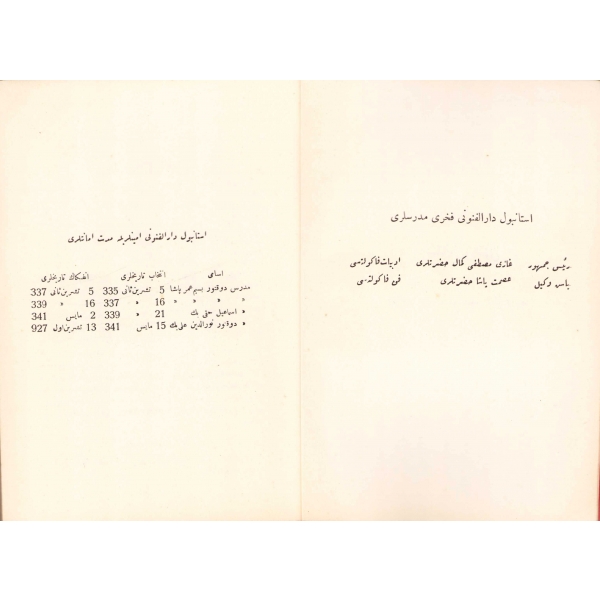 استانبول دارالفنونی فخری مدرسلری
رئیس جمهور غازی مصطفی کمال حضرتلری ادبیات فاکولتهسی
باش وکیل عصمت پاشا حضرتلری فن فاکولتهسی
استانبول دارالفنونی امینلریله مدت امانتلری
اسامی انتخاب تاریخلری انفکاک تاریخلری
مدرس دوقتور بسیم عمر پاشا 5 تشرین ثانی 335 5 تشرین ثانی 337
» » » » 16 » 337 16 » 339
» اسماعیل حقی بك 21 » 339 2 مایس 341
» دوقتور نورالدین علی بك 15 مایس 341 13 تشرین اول 927